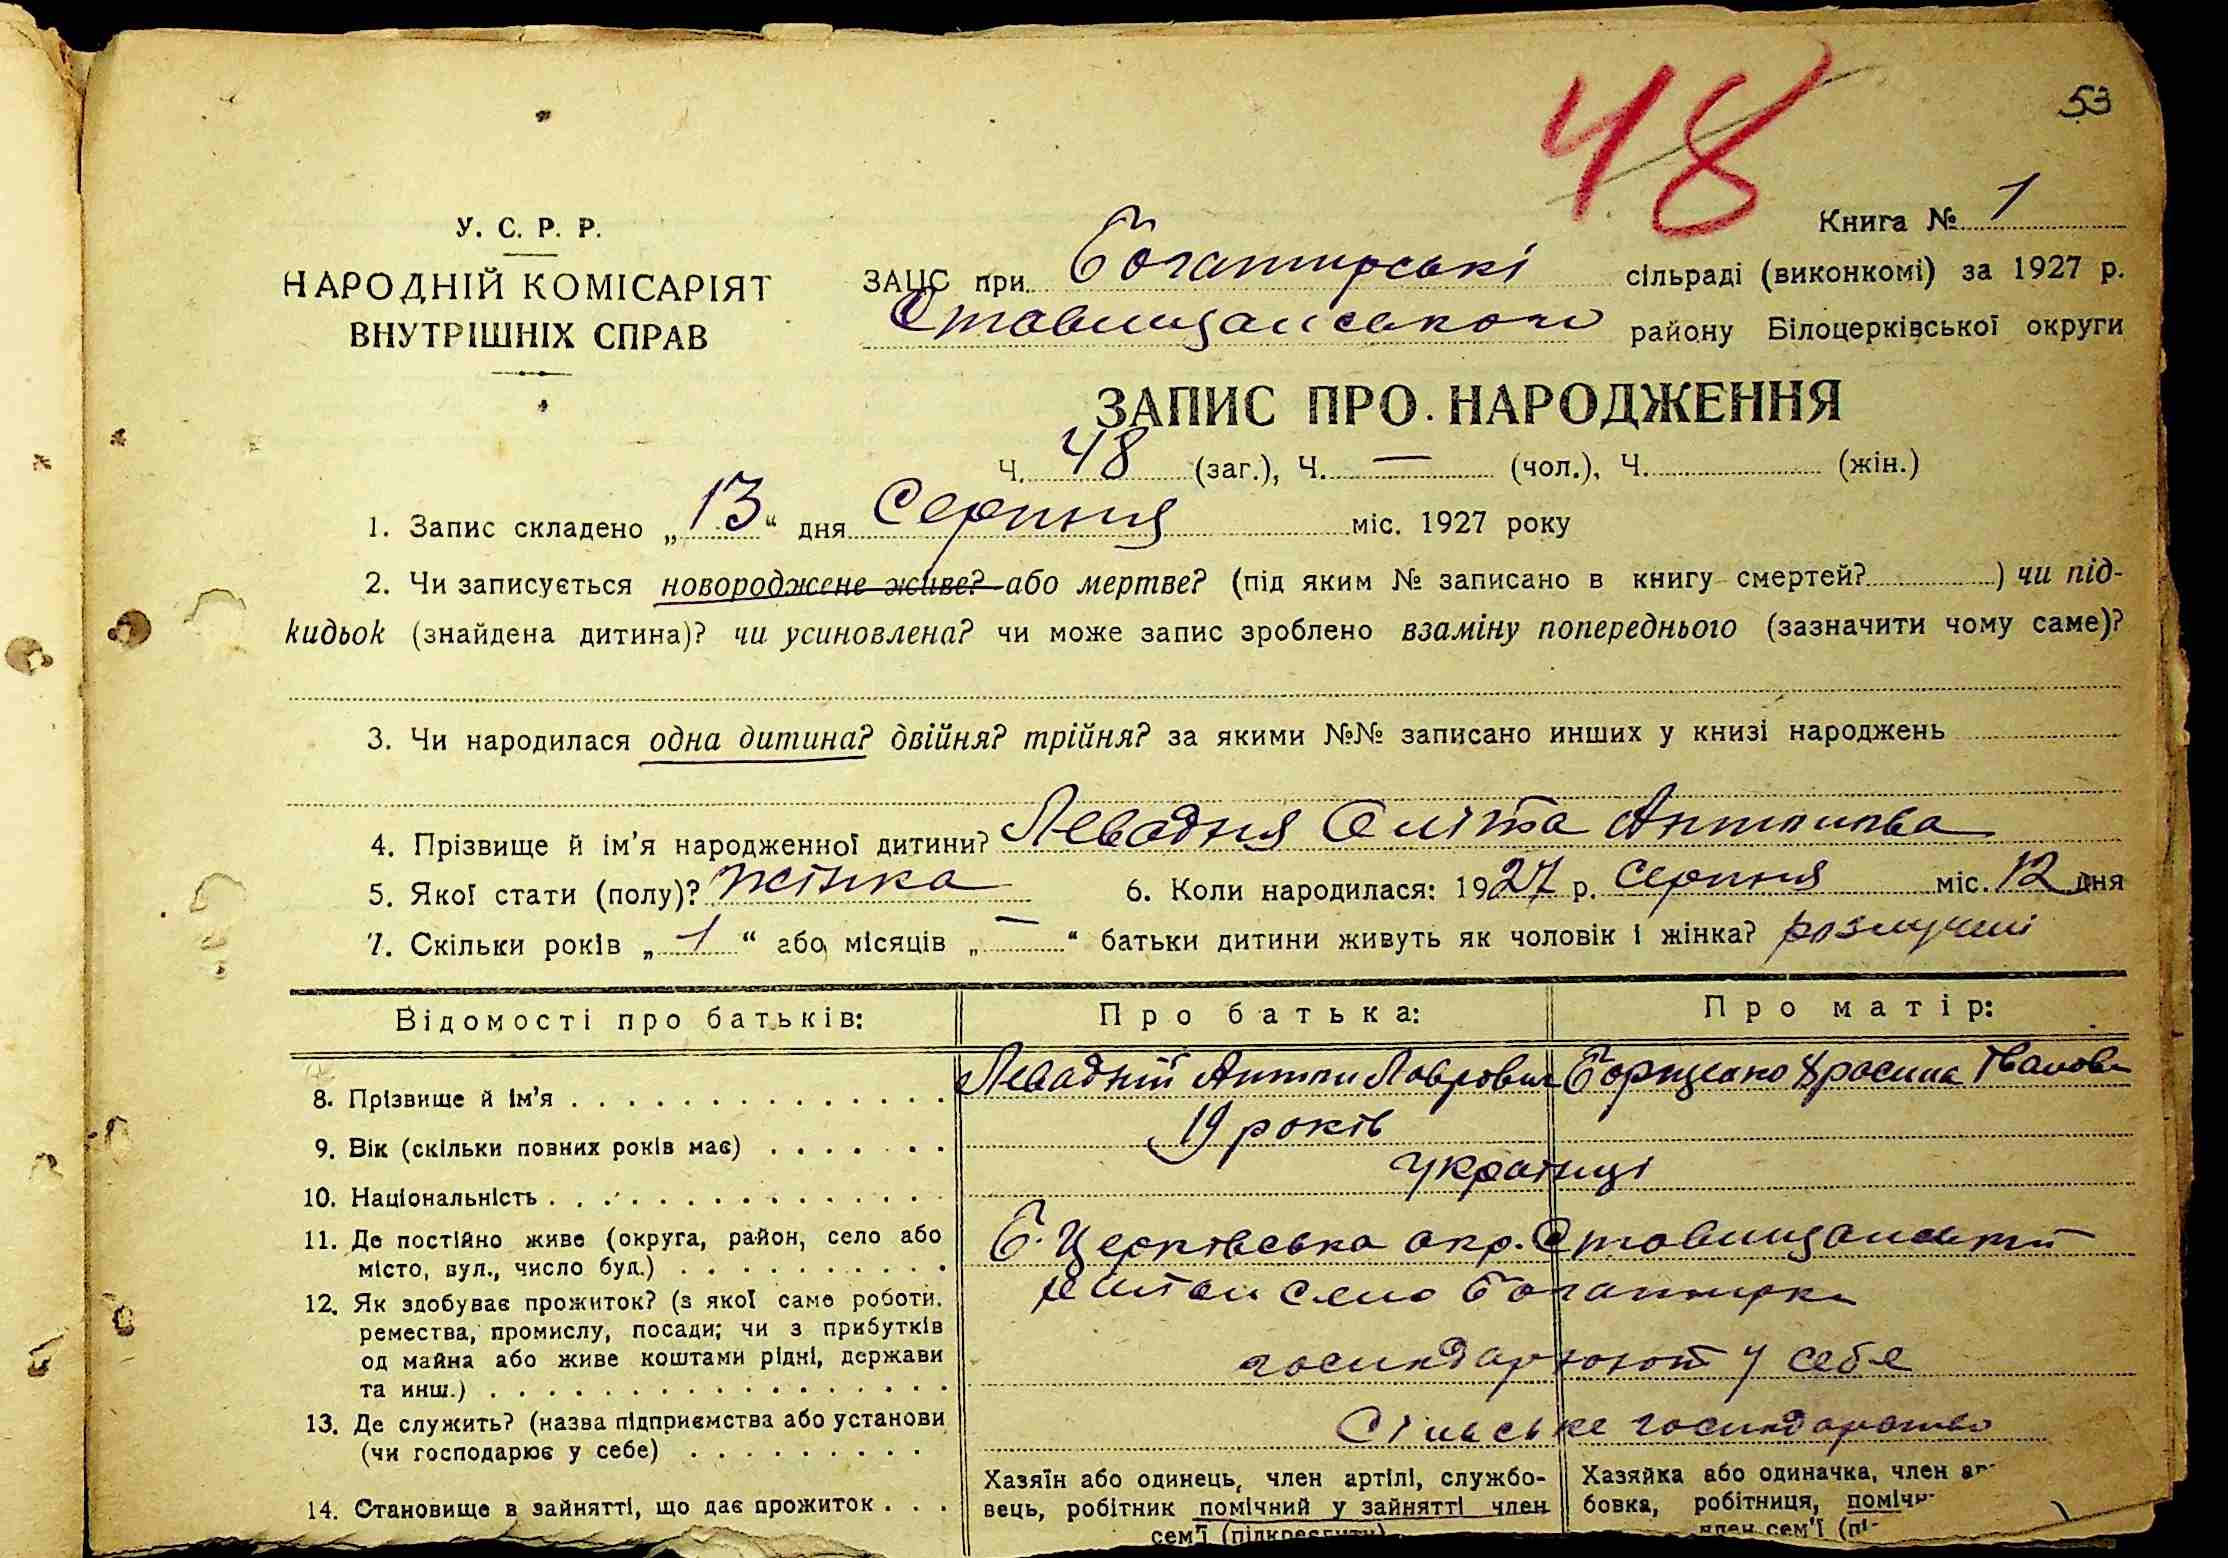 48
53
Книга № 1
У. С. Р. Р.
НАРОДНІЙ КОМІСАРІЯТ
ВНУТРІШНІХ СПРАВ
ЗАЦС при Богатирські сільраді (виконкомі) за 1927 р.
Ставищанського району Білоцерківської округи
ЗАПИС ПРО НАРОДЖЕННЯ
Ч. 48 (заг.), Ч. — (чол.), Ч. (жін.)
1. Запис складено „13“ дня Серпня міс. 1927 року
2. Чи записується новороджене живе? або мертве? (під яким № записано в книгу смертей? ) чи під-
кидьок (знайдена дитина)? чи усиновлена? чи може запис зроблено взаміну попереднього (зазначити чому саме)?
3. Чи народилася одна дитина? двійня? трійня? за якими №№ записано инших у книзі народжень
4. Прізвище й ім'я народженної дитини? Левадня Антонова
5. Якої стати (полу)? жінка 6. Коли народилася: 1927 р. серпня міс. 12 дня
7. Скільки років „1“ або місяців „—“ батьки дитини живуть як чоловік і жінка? розлучені
Відомості про батьків: Про батька: Про матір:
8. Прізвище й ім'я Левадній Антон Лаврович Борщенко Фросина Іванов
9. Вік (скільки повних років має) 19 років
10. Національність українці
11. Де постійно живе (округа, район, село або
місто, вул., число буд.)
Б. Церківська окр. Ставищанський
район село Богатирка
12. Як здобуває прожиток? (з якої саме роботи,
ремества, промислу, посади; чи з прибутків
од майна або живе коштами рідні, держави
та инш.)
господарюют у себе
13. Де служить? (назва підприємства або установи
(чи господарює у себе)
Сільське господарство
14. Становище в зайнятті, що дає прожиток
Хазяїн або одинець, член артілі, службо-
вець, робітник помічний у зайнятті член
сем'ї (підкреслити)
Хазяйка або одиначка, член ар
бовка, робітниця, поміч
член сем'ї (пі